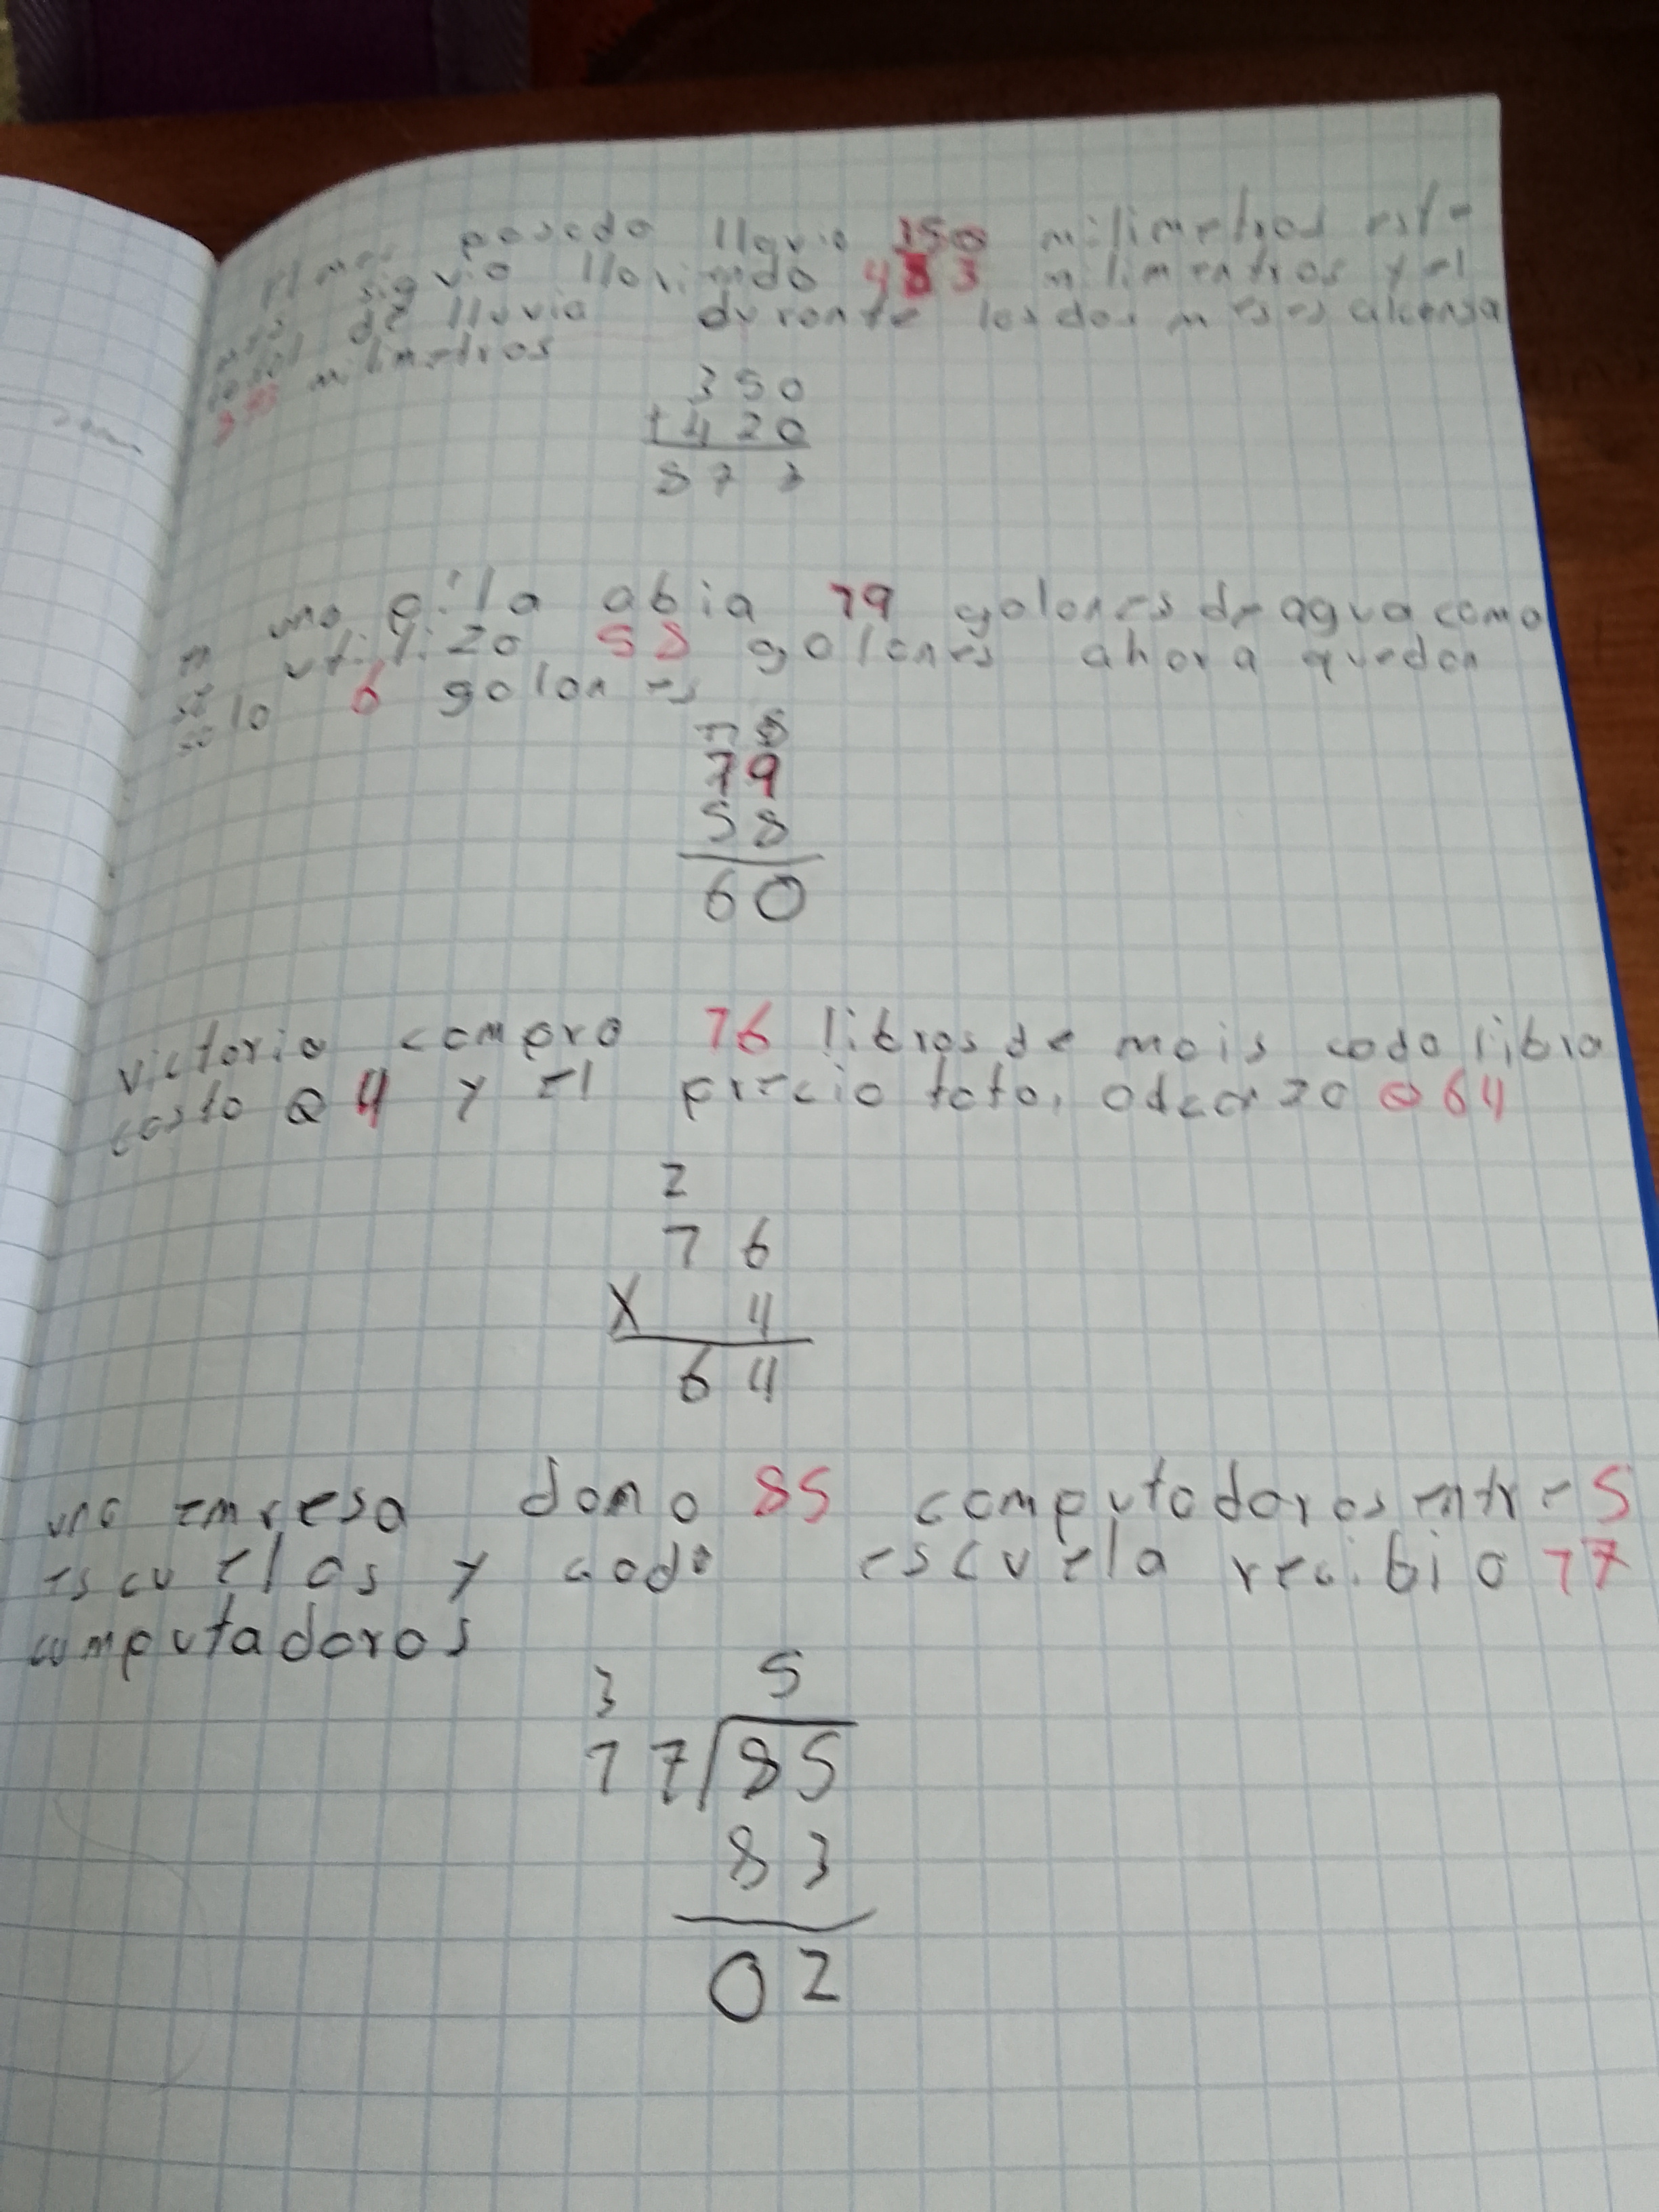 el mes pasado lluvio 150 milimetros este
mes siguio lloviendo 453 milimentros y el
total de lluvia duronte los dos meses alcansa
873 milimetros
350
+420
873
en una pila abia 79 golones de agua como
se utilizo 58 golones ahora quedan
solo 6 golones
79
58
60
victoria compro 76 libras de mais cada libra
costo Q 4 y el precio total adcanzo Q 64
2
76
X 4
64
una empresa dono 85 computadoras entre 5
escuelas y cada escuela recibio 17
computadoras
3 5
17 85
83
02